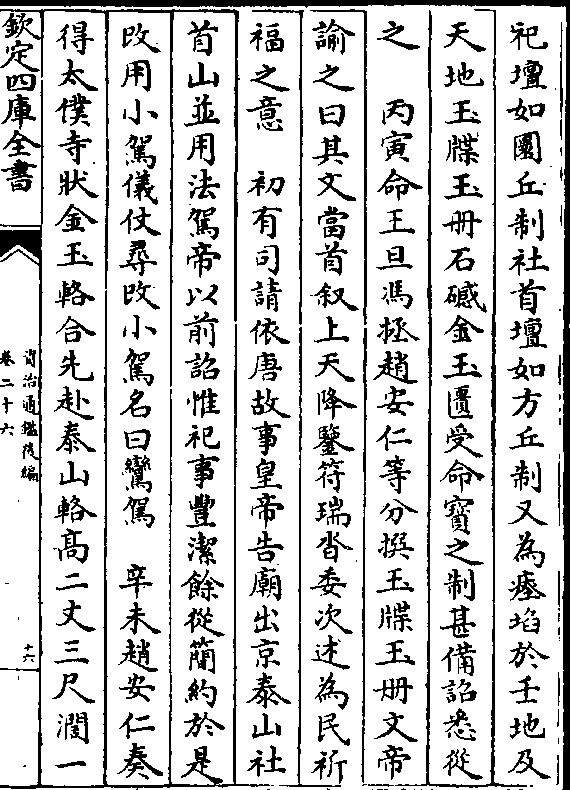 祀壇如圜丘制社首壇如方丘制又為瘞埳於壬地及
天地玉牒玉冊石䃭金玉匱受命寳之制甚備詔悉從
之　丙寅命王旦馮拯趙安仁等分撰玉牒玉冊文帝
諭之曰其文當首叙上天降鑒符瑞沓委次述為民祈
福之意　初有司請依唐故事皇帝告廟出京泰山社
首山並用法駕帝以前詔惟祀事豐潔餘從簡約於是
改用小駕儀仗尋改小駕名曰鸞駕　辛未趙安仁奏
得太僕寺狀金玉輅合先赴泰山輅髙二丈三尺濶一
欽定四庫全書
資治通鑑後編
卷二十六
十六